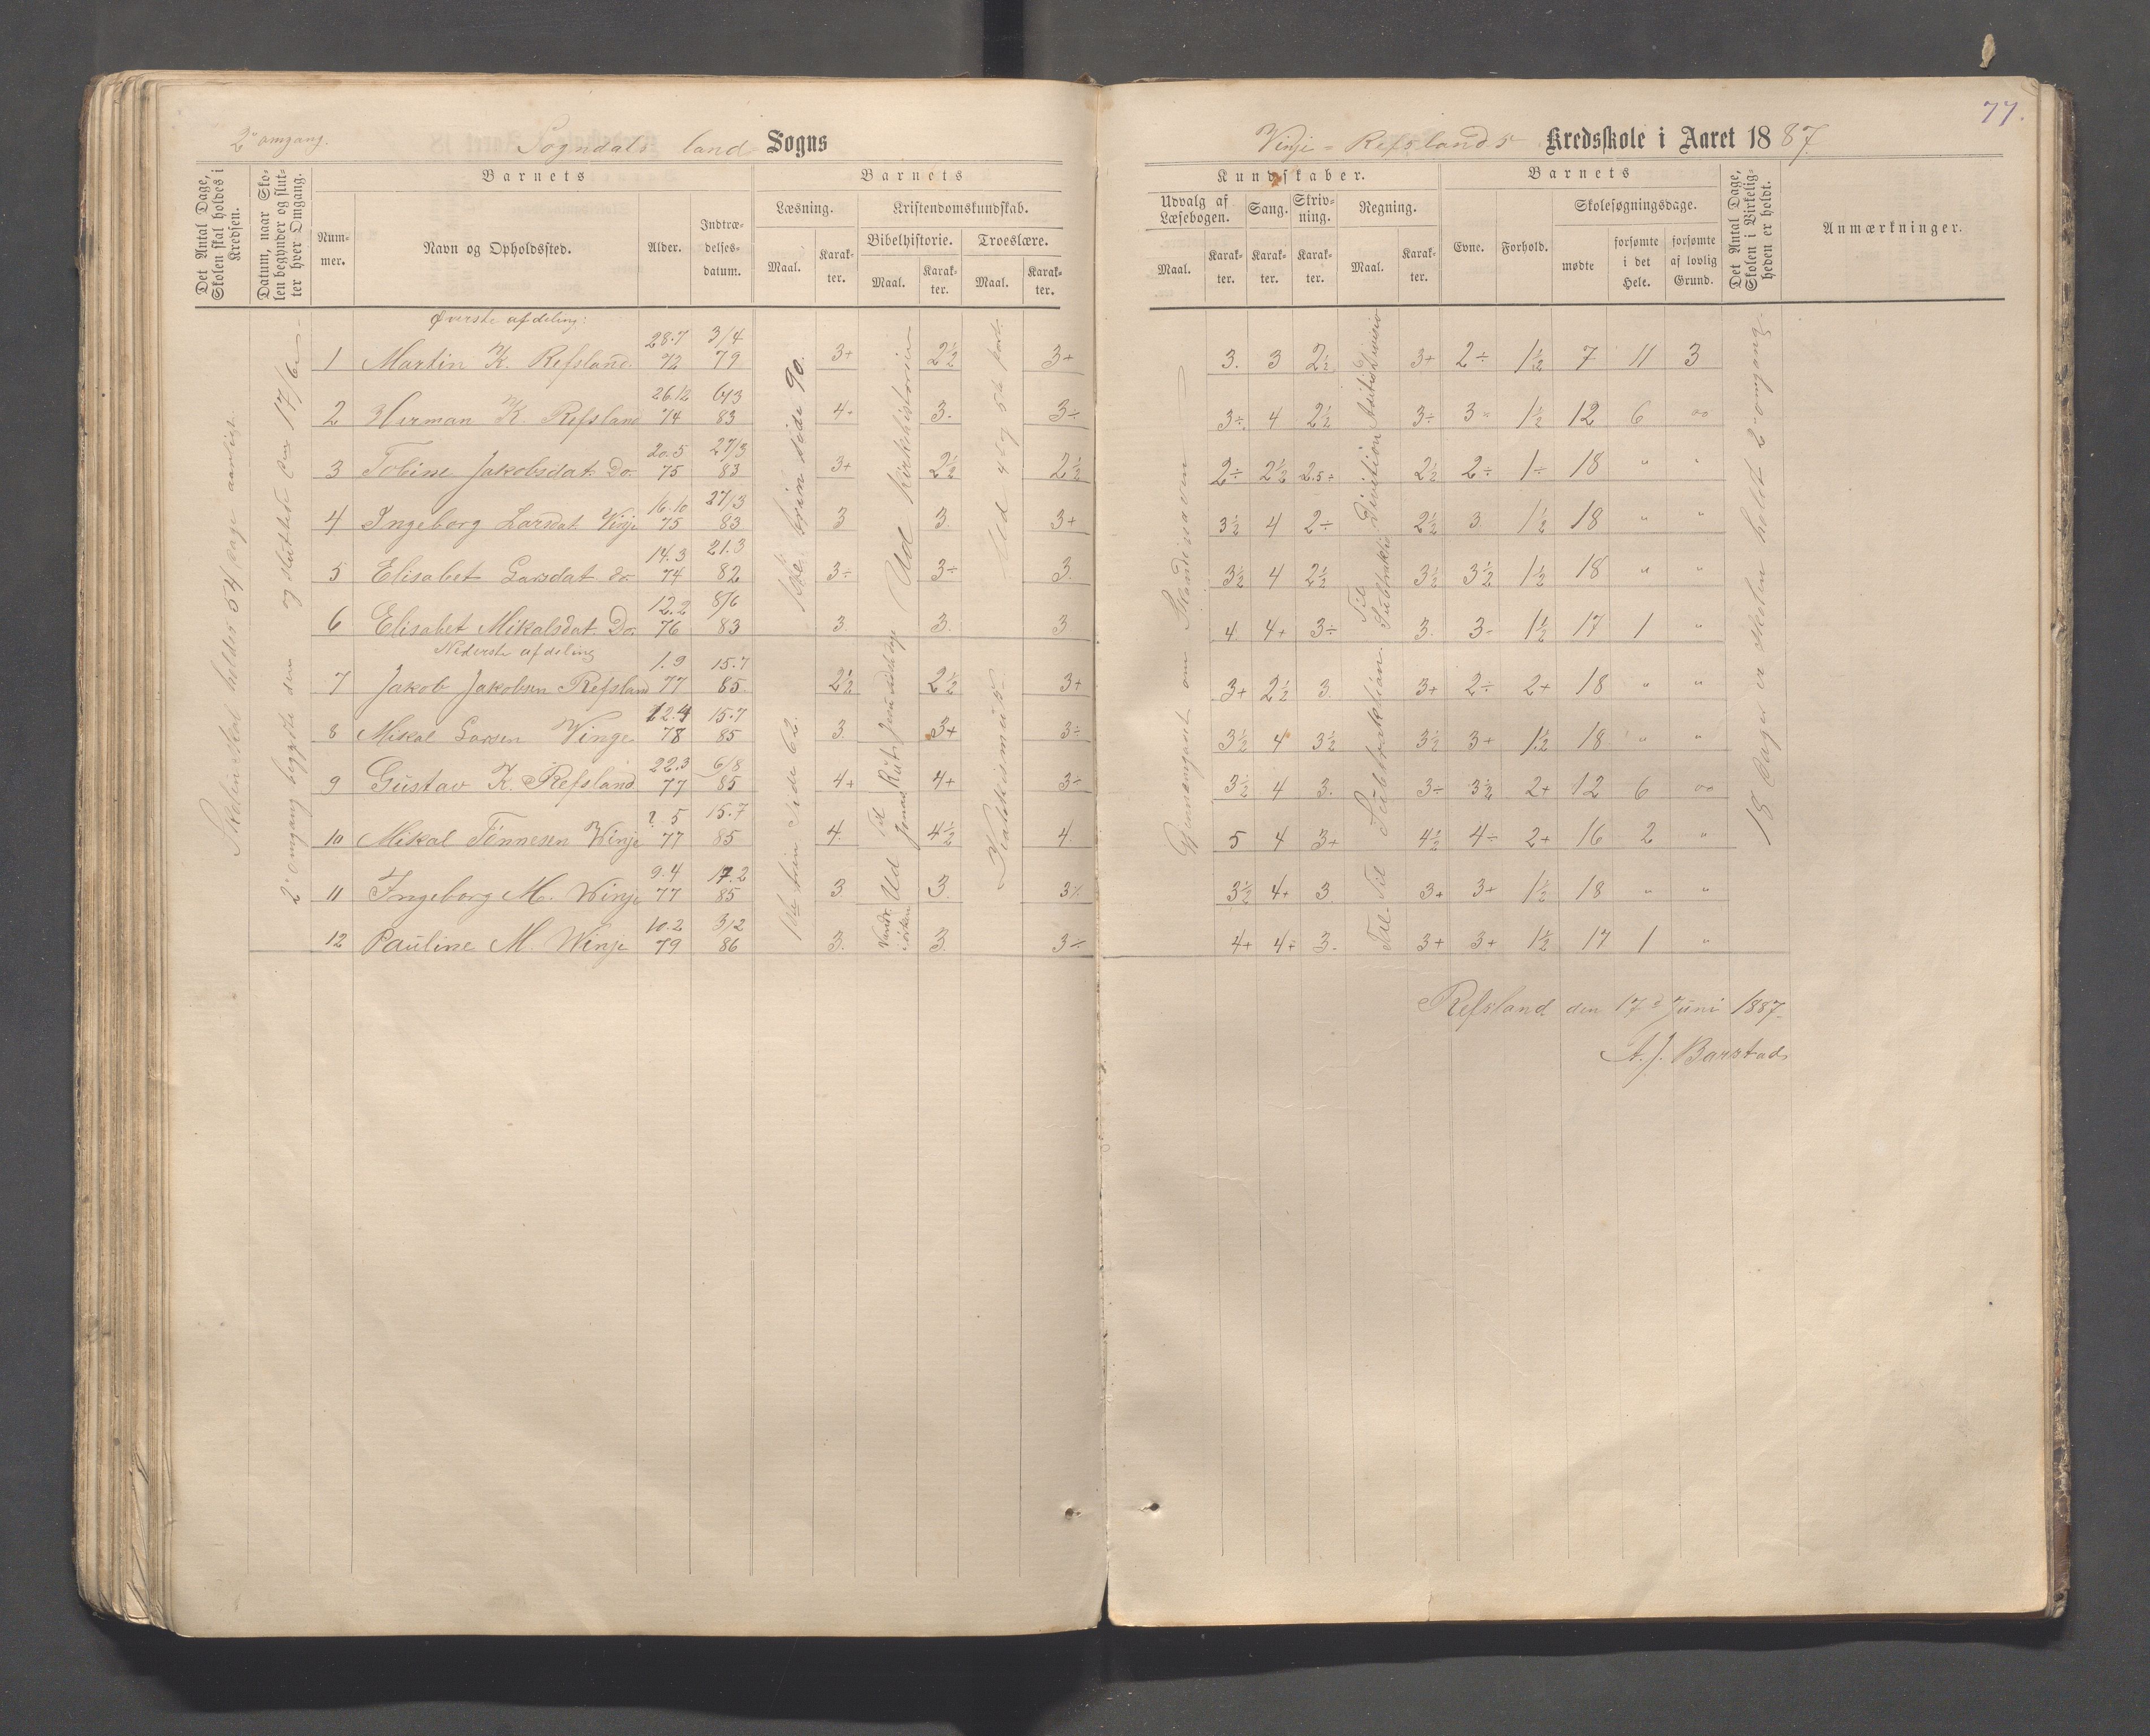 77.
2den omgang.
Sogndals land Sogns
Vinje-Refslands Kredsskole i Aaret 1887.
Det Antal Dage, Skolen skal holdes i Kredsen.
Datum, naar Skolen begynder og slutter hver Omgang.
Barnets
Nummer.
Navn og Opholdssted.
Alder.
Indtrædelsesdatum.
Barnets
Læsning.
Maal.
Karakter.
Kristendomskundskab.
Bibelhistorie.
Maal.
Karakter.
Troeslære.
Maal.
Karakter.
Kundskaber.
Udvalg af Læsebogen.
Maal.
Karakter.
Sang.
Karakter.
Skrivning.
Karakter.
Regning.
Maal.
Karakter.
Barnets
Evne.
Forhold.
Skolesøgningsdage.
mødte
forsømte i det Hele.
forsømte af lovlig Grund.
Det Antal Dage, Skolen i Virkeligheden er holdt.
Anmærkninger.
Skolen skal holdes 54 dage aarligt.
2den omgang begyndte den og sluttede den 17/6
Øverste afdeling:
1 Martin K. Refsland 28.7 72 3/4 79 3+ 2½ 3+ 3. 3 2½ 3+ 2÷ 1½ 7 11 3
2 Herman K. Refsland 26.12 74 83 4+ 3. 3÷ 3÷ 4 2½ 3÷ 3 1½ 12 6 oo
3 Tobine Jakobsdat. Do. 20.5 75 27/3 83 3+ 2½ 2½ 2÷ 2½ 2.5÷ 2½ 2÷ 1÷ 18 " "
4 Ingeborg Larsdat. Winje 16.10 75 27/3 83 3 3. 3+ 3½ 4 2÷ 2½ 3 1½ 18 " "
5 Elisabet Larsdat do. 14.3 74 21.3 82 3÷ 3÷ 3. 3½ 4 2½ 3½ 3½ 1½ 18 " "
6 Elisabet Mikalsdat. Do. 12.2 76 8/6 83 3. 3. 3 4. 4+ 3÷ 3. 3÷ 1½ 17 1 "
Nederste afdeling
7 Jakob Jakobsen Refsland 1.9 77 15.7 85. 2½ 2½ 3+ 3+ 2½ 3. 3+ 2÷ 2+ 18 " "
8 Mikal Larsen Vinge 22.4 78 15.7 85 3. 3+ 3÷ 3½ 4 3½ 3½ 3+ 1½ 18 " "
9 Gustav K. Refsland. 22.3 77 6/8 85 4+ 4+ 3÷ 3½ 4 3. 3÷ 3½ 2+ 12 6 oo
10 Mikal Tønnesen Winje ?.5 77 15.7 85 4. 4½ 4. 5 4 3+ 4½ 4÷ 2+ 16 2 "
11 Ingeborg M. Winje 9.4 77 17.2 85 3 3. 3½ 3½ 4+ 3. 3+ 3+ 1½ 18 " "
12 Pauline M. Winje 10.2 79 3/2 86 3. 3. 3÷ 4+ 4+ 3. 3+ 3+ 1½ 17 1 "
trin side 90.
trin side 62.
Ud Kirkehistorien
Ud 4 og 5te part.
Katekismus
Gjennemgaaet om
Division
Til Subtraktion
18 dage er skolen holdt 2den omgang.
Refsland den 17de Juni 1887.
A. J. Barstad